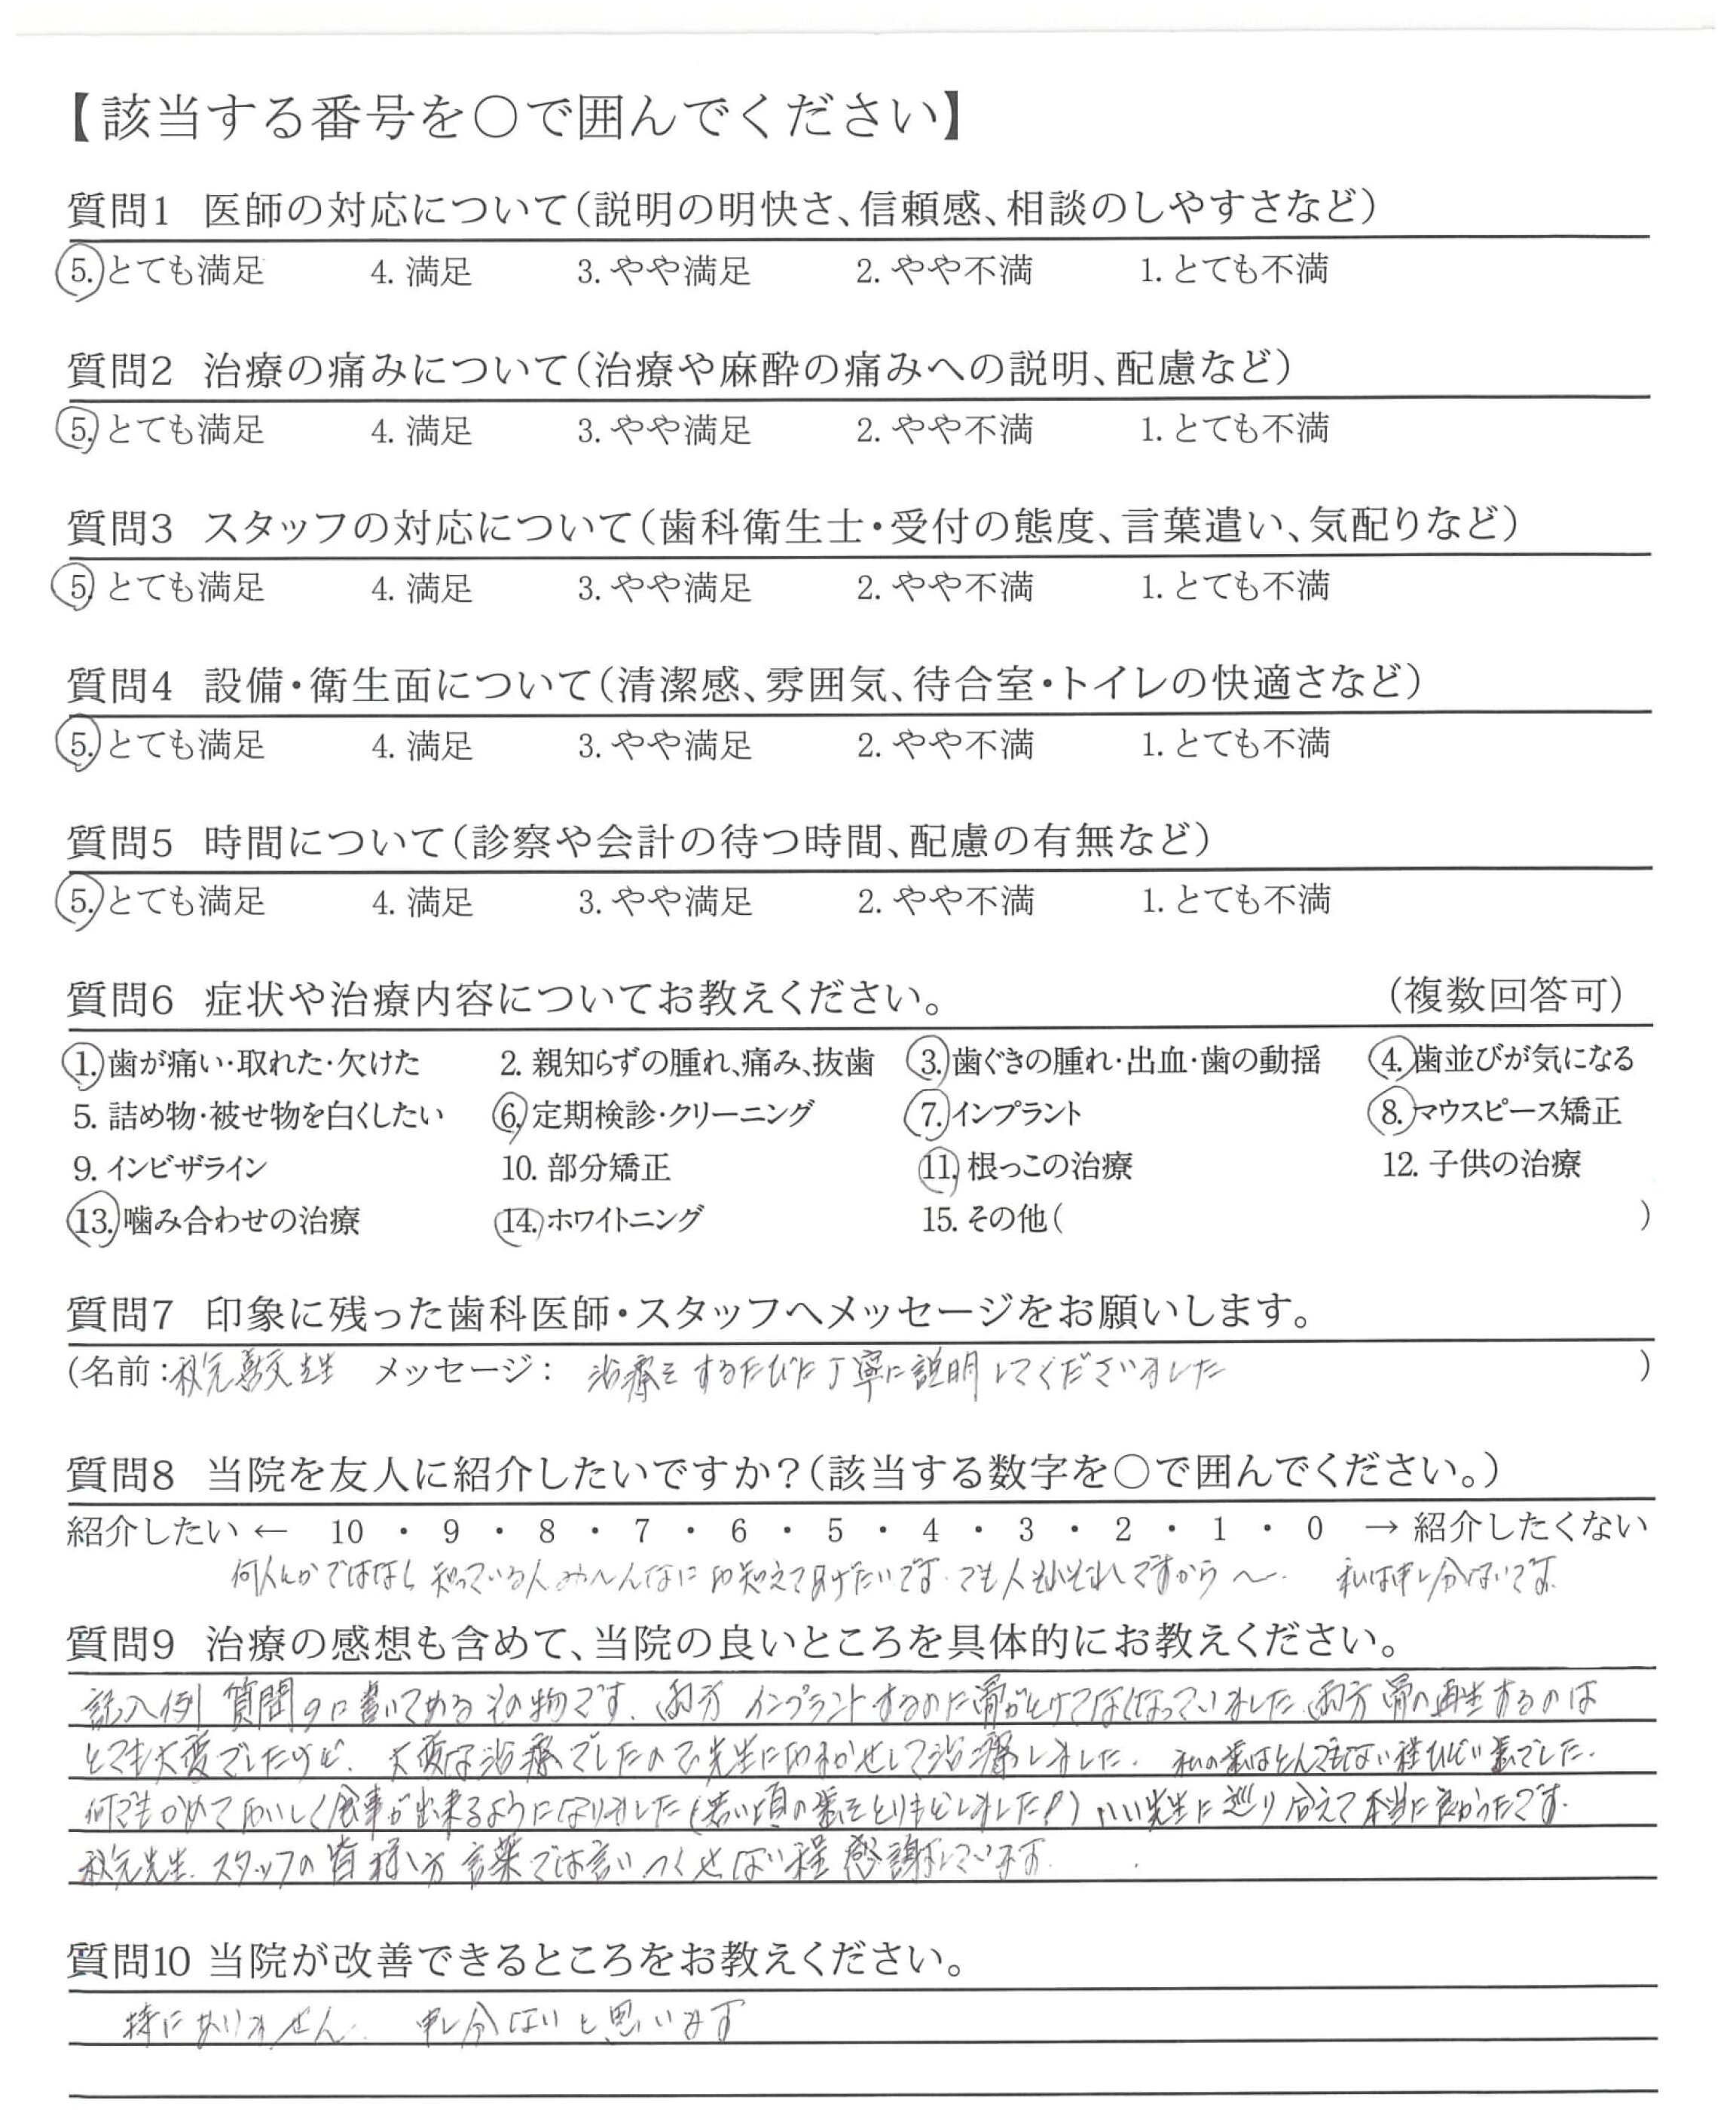 【該当する番号を○で囲んでください】
質問1 医師の対応について（説明の明快さ、信頼感、相談のしやすさなど）
5. とても満足 4. 満足 3. やや満足 2. やや不満 1. とても不満
質問2 治療の痛みについて（治療や麻酔の痛みへの説明、配慮など）
5. とても満足 4. 満足 3. やや満足 2. やや不満 1. とても不満
質問3 スタッフの対応について（歯科衛生士・受付の態度、言葉遣い、気配りなど）
5. とても満足 4. 満足 3. やや満足 2. やや不満 1. とても不満
質問4 設備・衛生面について（清潔感、雰囲気、待合室・トイレの快適さなど）
5. とても満足 4. 満足 3. やや満足 2. やや不満 1. とても不満
質問5 時間について（診察や会計の待つ時間、配慮の有無など）
5. とても満足 4. 満足 3. やや満足 2. やや不満 1. とても不満
質問6 症状や治療内容についてお教えください。 （複数回答可）
1. 歯が痛い・取れた・欠けた 2. 親知らずの腫れ、痛み、抜歯 3. 歯ぐきの腫れ・出血・歯の動揺 4. 歯並びが気になる
5. 詰め物・被せ物を白くしたい 6. 定期検診・クリーニング 7. インプラント 8. マウスピース矯正
9. インビザライン 10. 部分矯正 11. 根っこの治療 12. 子供の治療
13. 噛み合わせの治療 14. ホワイトニング 15. その他（ ）
質問7 印象に残った歯科医師・スタッフへメッセージをお願いします。
（名前：秋元 先生 メッセージ： 治療をするたびに丁寧に説明してくださいました ）
質問8 当院を友人に紹介したいですか？（該当する数字を○で囲んでください。）
紹介したい ← 10 ・ 9 ・ 8 ・ 7 ・ 6 ・ 5 ・ 4 ・ 3 ・ 2 ・ 1 ・ 0 → 紹介したくない
何人とかではなく知っている人みーんなに お知えてあげたいです. でも人それぞれですから〜. 私は申し分ないです.
質問9 治療の感想も含めて、当院の良いところを具体的にお教えください。
記入例 質問9に書いてあるその物です. 両方 インプラントするのに骨がとけてなくなっていました. 両方 骨の再生するのは
とても大変でしたけど. 大変な治療でしたので先生におまかせして治療しました. 私の歯はとんでもない程ひどい歯でした.
何でもかめておいしく食事が出来るようになりました（若い頃の歯をとりもどしました!）いい先生に巡り合えて本当に良かったです.
秋元先生. スタッフの皆様方 言葉では言いつくせない程 感謝しています.
質問10 当院が改善できるところをお教えください。
特にありません. 申し分ないと思います